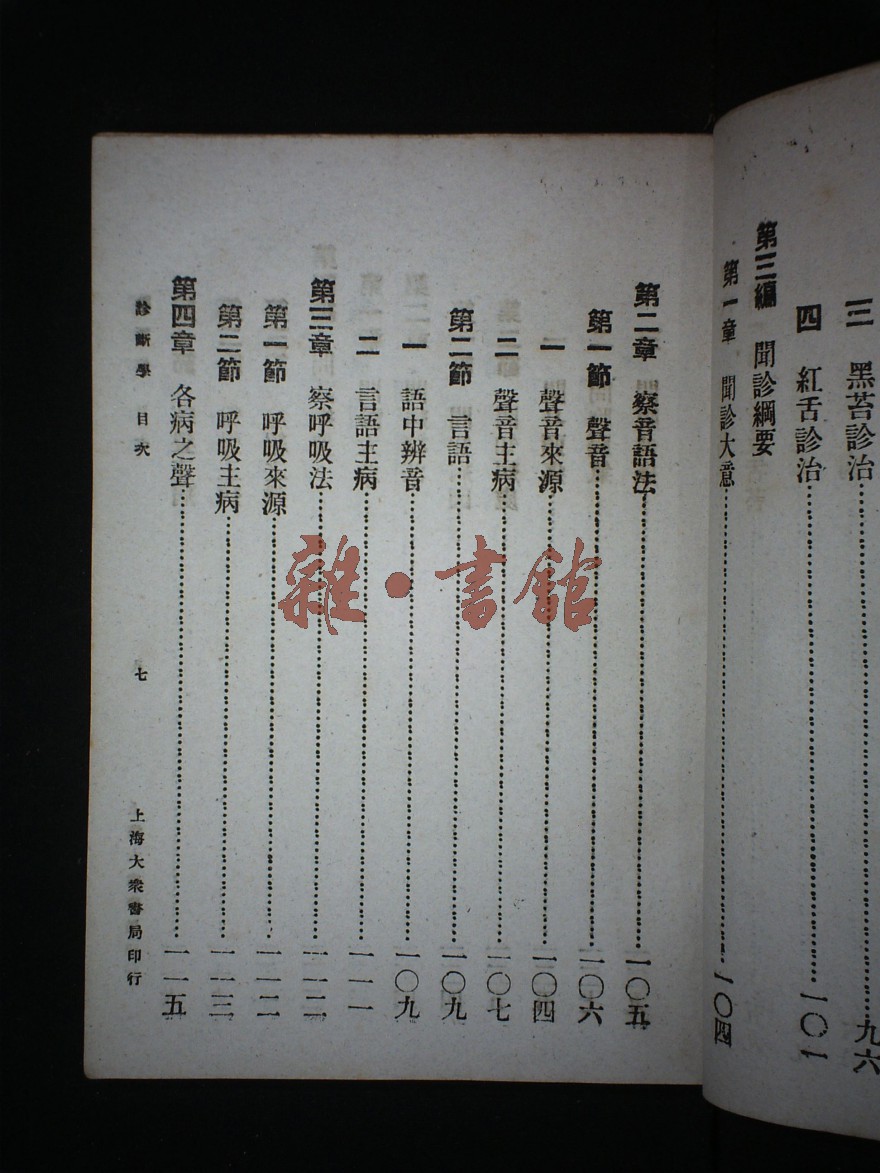 三 黑苔診治⋯⋯九六
四 紅舌診治⋯⋯一〇一
第三編 聞診綱要
第一章 聞診大意⋯⋯一〇四
第二章 察音語法⋯⋯一〇五
第一節 聲音⋯⋯一〇六
一 聲音來源⋯⋯一〇四
二 聲音主病⋯⋯一〇七
第二節 言語⋯⋯一〇九
一 語中辨音⋯⋯一〇九
二 言語主病⋯⋯一一一
第三章 察呼吸法⋯⋯一一二
第一節 呼吸來源⋯⋯一一二
第二節 呼吸主病⋯⋯一一三
第四章 各病之聲⋯⋯一一五
診斷學 目次 七 上海大衆書局印行
雜·書館